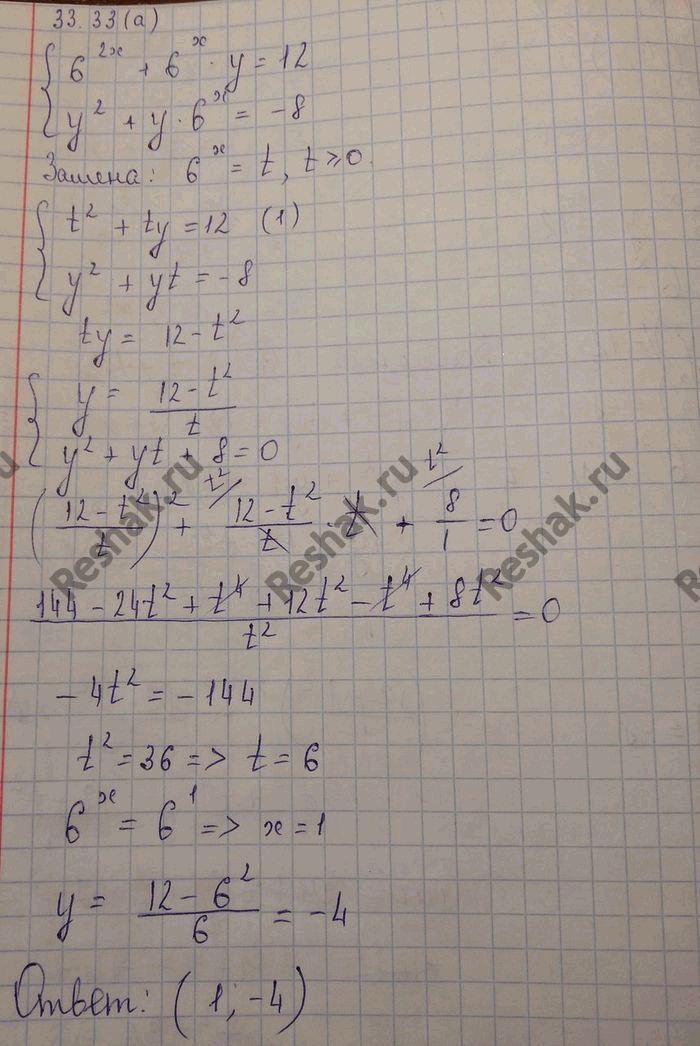 33.33(а)
{ 6^{2x} + 6^x · y = 12
y² + y · 6^x = -8
Замена: 6^x = t, t ≥ 0.
{ t² + ty = 12 (1)
y² + yt = -8
ty = 12 - t²
{ y = (12 - t²)/t
y² + yt + 8 = 0
((12 - t²)/t)² + (12 - t²)/t · t + 8/1 = 0
(144 - 24t² + t⁴ + 12t² - t⁴ + 8t²)/t² = 0
-4t² = -144
t² = 36 => t = 6
6^x = 6^1 => x = 1
y = (12 - 6²)/6 = -4
Ответ: (1; -4)
Reshak.ru
Reshak.ru
Reshak.ru